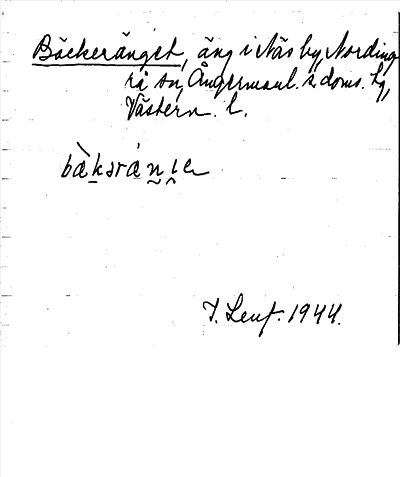 Bäckeränget, äng i Näs by, Nording-
rå sn, Ångermanl. s. doms. tg,
Västern. l.
T. Lenf. 1944.